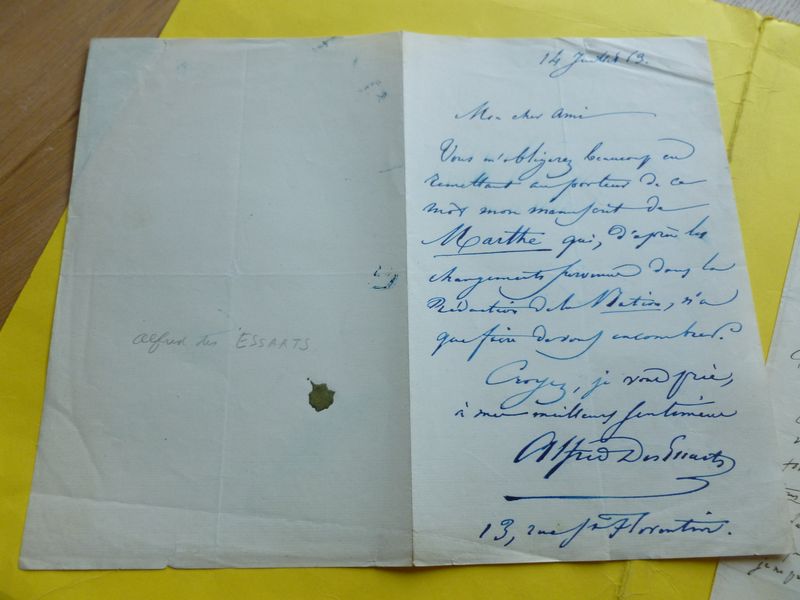 alfred des ESSARTS
14 Juillet 63.
Mon cher Ami
Vous m'obligerez beaucoup en
remettant au porteur de ce
mot mon manuscrit de
Marthe qui, d'après les
changements survenus dans la
Rédaction de la Nation, n'a
que faire de vous encombrer.
Croyez, je vous prie,
à mes meilleurs sentiments
Alfred Des Essarts
13, rue St Florentin.